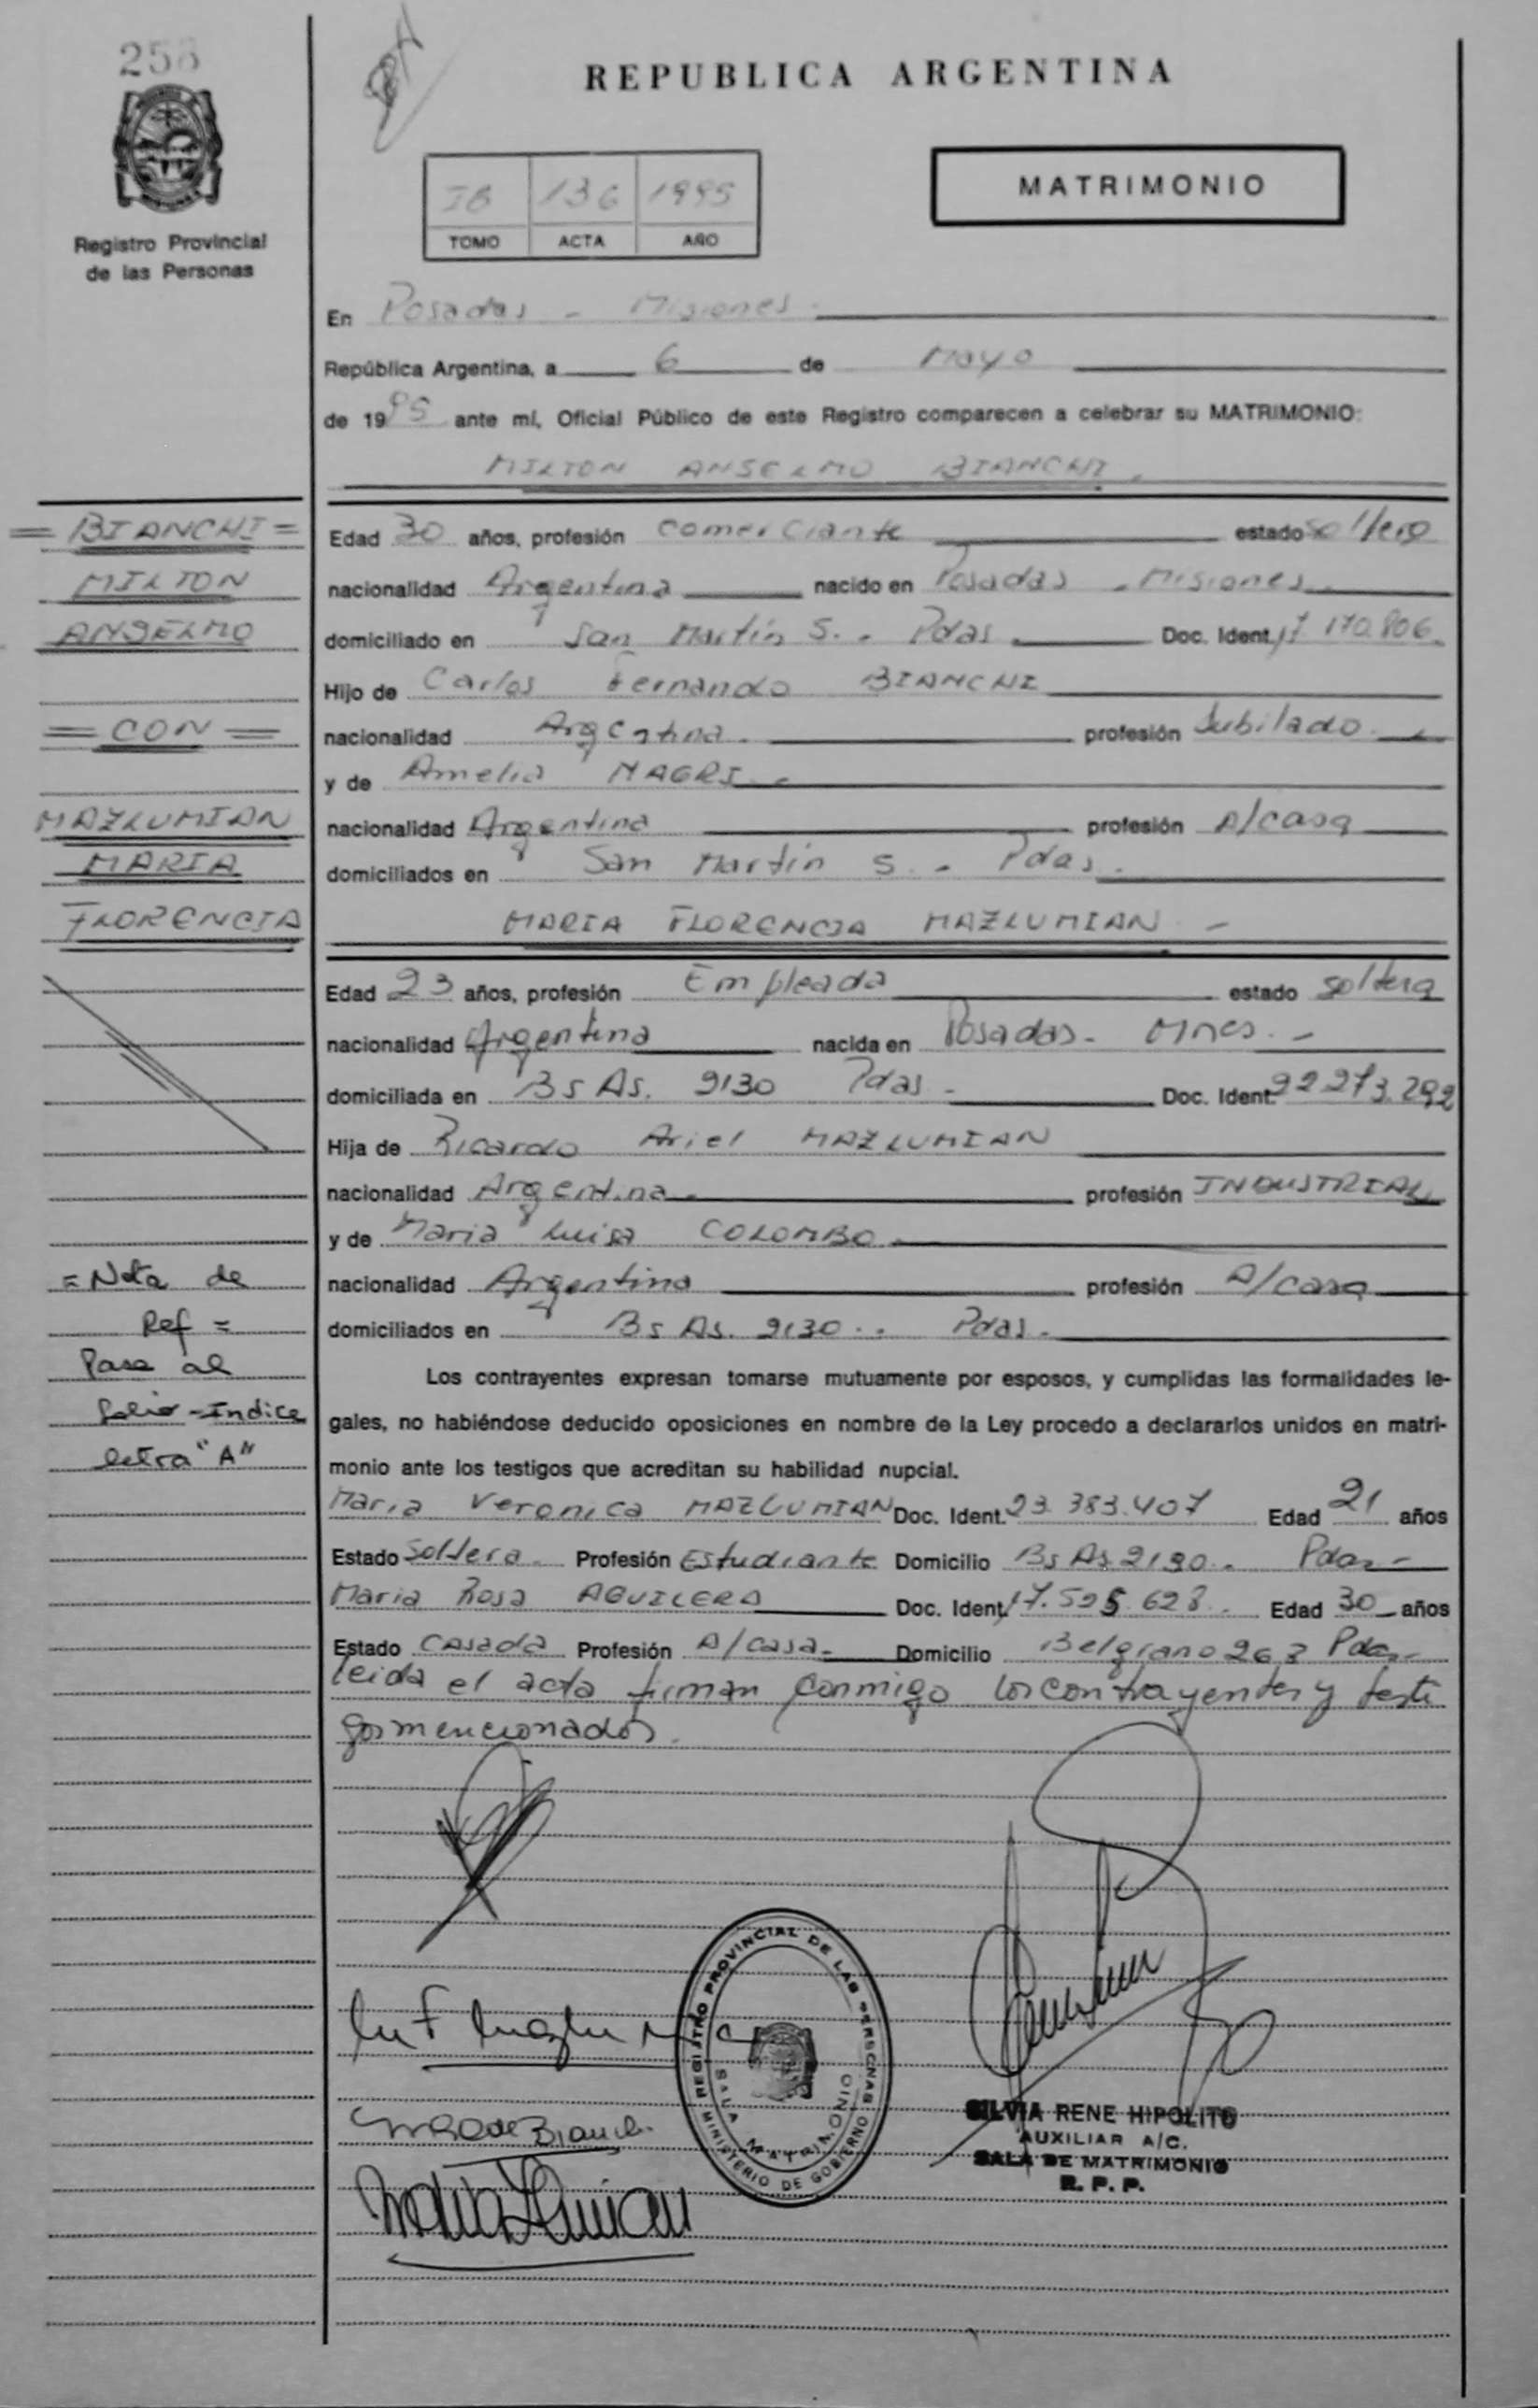 REPUBLICA ARGENTINA
Registro Provincial
de las Personas
MATRIMONIO
136 1995
TOMO ACTA AÑO
En Posadas - Misiones.
República Argentina, a 6 de Mayo
de 1995 ante mí, Oficial Público de este Registro comparecen a celebrar su MATRIMONIO:
MILTON ANSELMO BIANCHI.
= BIANCHI =
MILTON
ANSELMO
= CON =
MAZLUMIAN
MARIA
FLORENCIA
Edad 30 años, profesión comerciante estado soltero
nacionalidad Argentina nacido en Posadas - Misiones.
domiciliado en San Martín S. - Pdas. Doc. Ident. 17.170.806.
Hijo de Carlos Fernando BIANCHI
nacionalidad Argentina. profesión Jubilado.
y de Amelia MAGRI.
nacionalidad Argentina profesión A/casa
domiciliados en San Martín S. - Pdas.
MARIA FLORENCIA MAZLUMIAN -
Edad 23 años, profesión Empleada estado soltera
nacionalidad Argentina nacida en Posadas - Mnes. -
domiciliada en Bs As. 2130 Pdas - Doc. Ident. 22.273.292
Hija de Ricardo Ariel MAZLUMIAN
nacionalidad Argentina. profesión INDUSTRIAL
y de Maria Luisa COLOMBO
nacionalidad Argentina profesión A/casa
domiciliados en Bs As. 2130 .. Pdas.
= Nota de
Ref =
Pasa al
folio - Indice
letra "A"
Los contrayentes expresan tomarse mutuamente por esposos, y cumplidas las formalidades le-
gales, no habiéndose deducido oposiciones en nombre de la Ley procedo a declararlos unidos en matri-
monio ante los testigos que acreditan su habilidad nupcial.
Maria Veronica MAZLUMIAN Doc. Ident. 23.383.407 Edad 21 años
Estado Soltera. Profesión Estudiante Domicilio Bs As 2130. Pdas -
Maria Rosa AGUILERA Doc. Ident. 17.525.628. Edad 30 años
Estado Casada Profesión A/casa. Domicilio Belgrano 263 Pdas -
leida el acta firman conmigo los contrayentes y testi
gos mencionados.
REGISTRO PROVINCIAL DE LAS PERSONAS
SALA MATRIMONIO
MINISTERIO DE GOBIERNO
SILVIA RENE HIPOLITO
AUXILIAR A/C.
SALA DE MATRIMONIO
R. P. P.